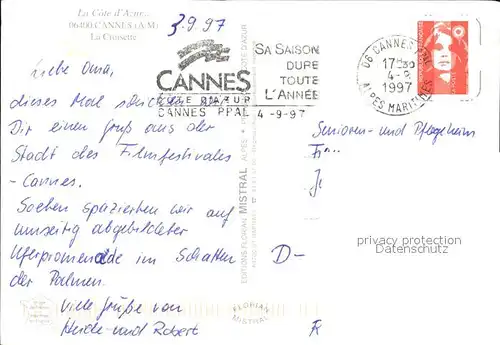 La Côte d'Azur...
06400 CANNES (A.M)
La Croisette
3.9.97
Liebe Oma,
dieses Mal schicken wir
Dir einen Gruß aus der
Stadt des Filmfestivales
- Cannes.
Soeben spazierten wir auf
umseitig abgebildeter
Uferpromenade im Schatten
der Palmen.
Viele Grüße von
Heide und Robert
CANNES
CÔTE D'AZUR
CANNES PPAL 4-9-97
SA SAISON
DURE
TOUTE
L'ANNÉE
06 CANNES PPAL
17H30
4-9
1997
ALPES MARITIMES
EDITIONS FLORIAN MISTRAL
FLORIAN
MISTRAL
Senioren- und Pflegeheim
F
J
D-
privacy protection
Datenschutz